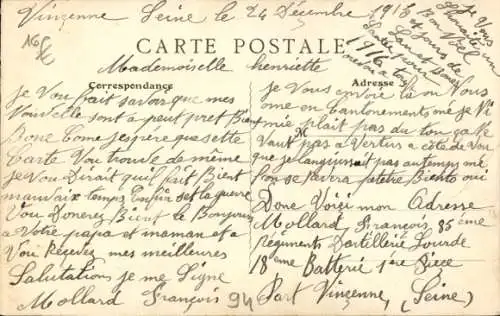 Vinçenne Seine le 24 Décembre 1915
Je Vous
Souhaite un
Bon Noël
et
jours de
Lan et Bonne
Santé pour
1916 a tous
CARTE POSTALE
Mademoiselle henriette
Correspondance
Adresse
Je Vou fait savoir que mes
Nouvelle sont a peut pret Bien
Bone Come J'espére que sette
Carte Vou trouve de même
Je Vou Dirait quil fait Bient
mauvaix temps Enfin set la guerre
Vou Donerez Bient le Bonjour
a Votre papa et maman et a
Voir Recevez mes meilleures
Salutations je me Signe
Mollard François
94
Je Vous envoie la ou Nous
some en Cantonements mé je Ni
mie plait pas du tou ça Ne
Vaut pas a Vertus a côté de Vou
que je languissait pas au temps mé
fon se Revera petétre Biento oui
Donc Voiçi mon Adresse
Mollard François 85 éme
Régiments Dartillerie Lourde
18 éme Batterie 1 ére Pièce
Fort Vinçenne, (Seine)